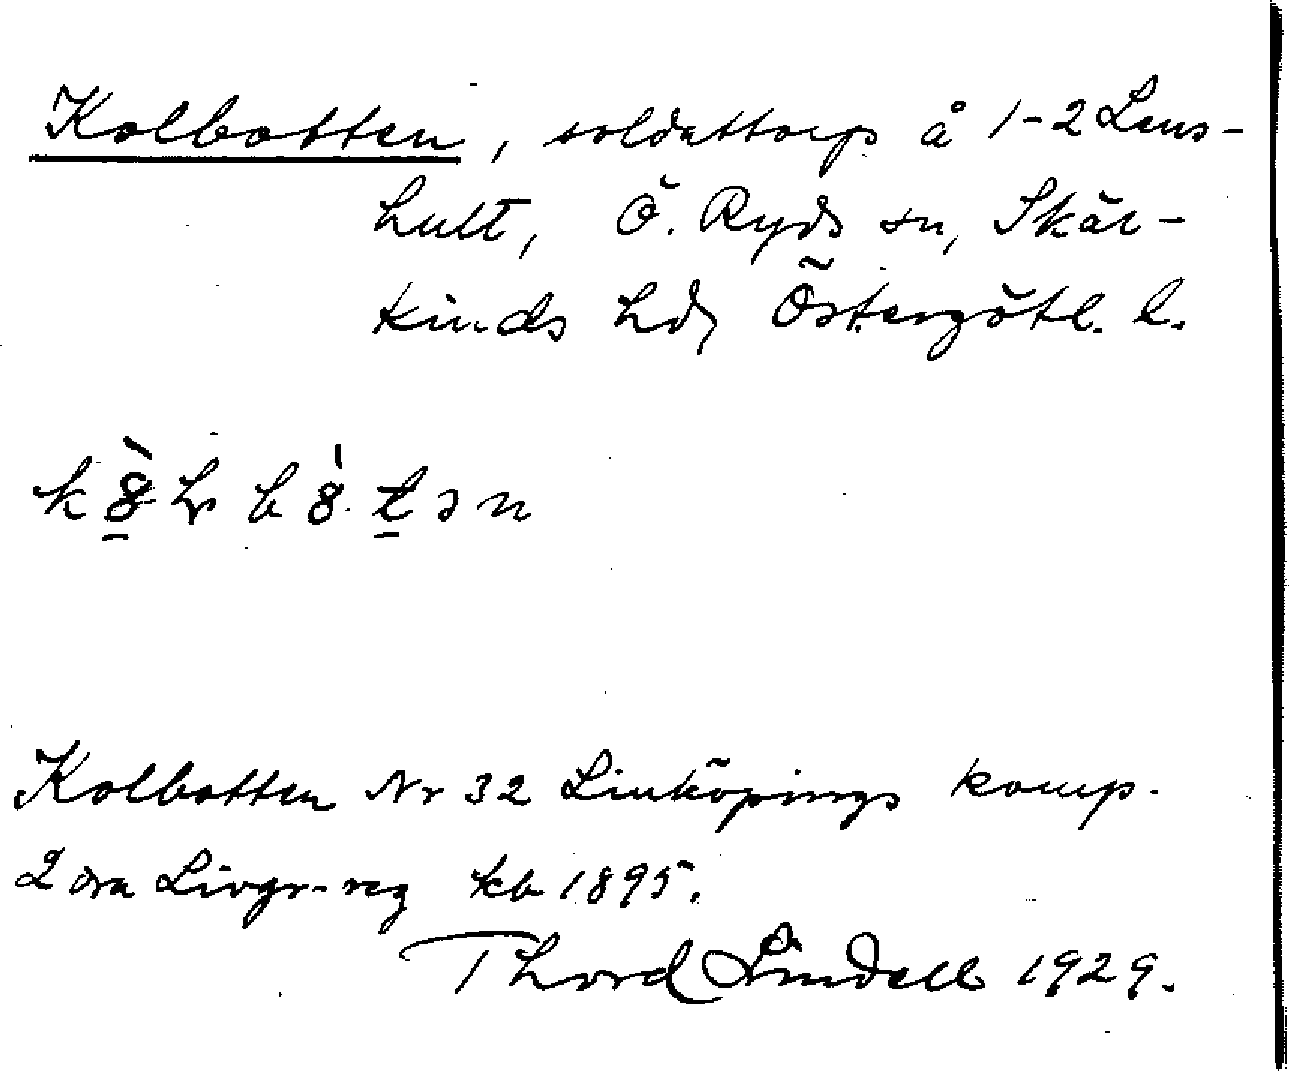 Kolbotten, soldattorp å 1-2 Lens-
hult, Ö. Ryds sn, Skär-
kinds hd, Östergötl. l.
Kolbotten Nr 32 Linköpings komp.
2dra Livgr-reg kb 1895.
Thord Lindell 1929.